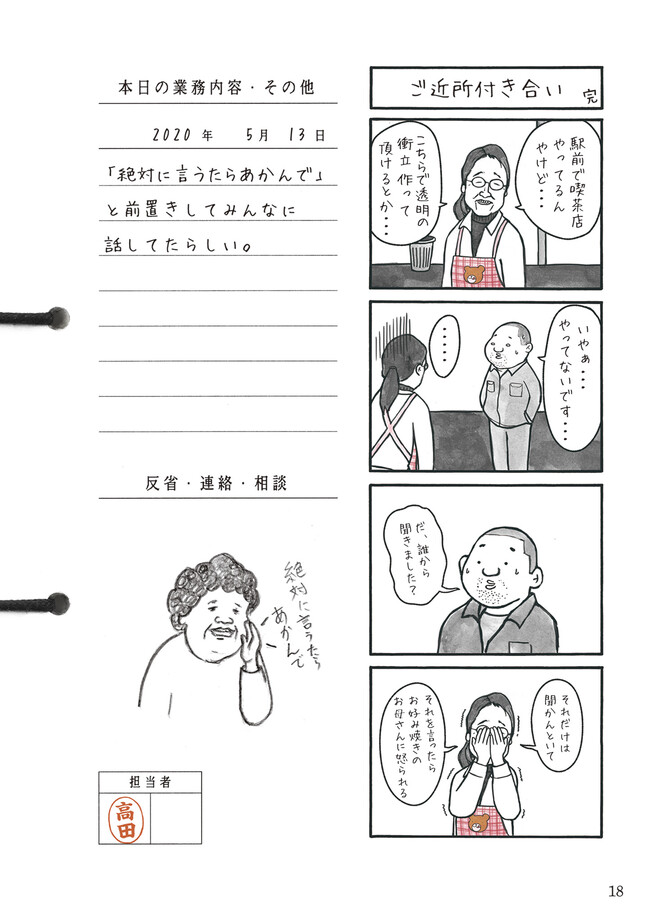 本日の業務内容・その他
2020年 5月 13日
「絶対に言うたらあかんで」
と前置きしてみんなに
話してたらしい。
反省・連絡・相談
絶対に言うたら
あかんで
担当者
高田
ご近所付き合い 完
駅前で喫茶店
やってるん
やけど・・・
こちらで透明の
衝立作って
頂けるとか・・・
いやぁ・・・
やってないです・・・
・・・・・
だ、誰から
聞きました？
それだけは
聞かんといて
それを言ったら
お好み焼きの
お母さんに怒られる
18